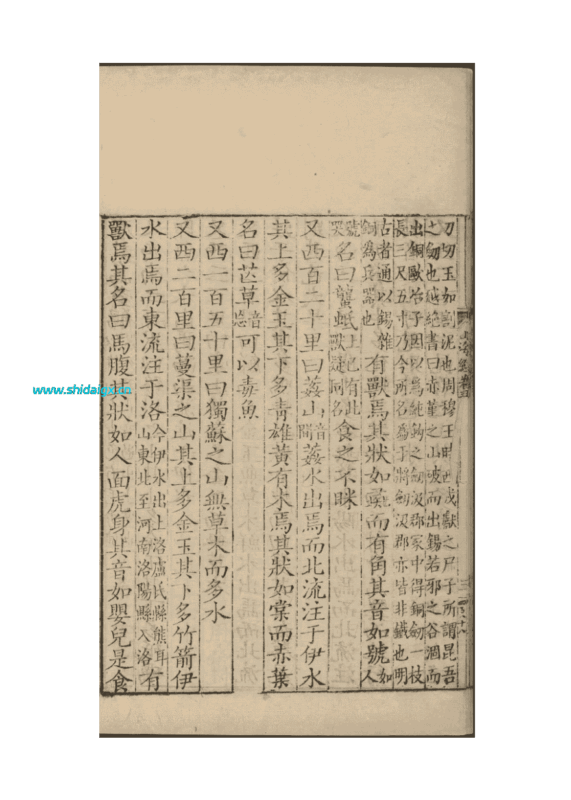 刀切玉如割泥也周穆王時西戎獻之尸子所謂昆吾
之劒也越絶書曰赤堇之山破而出錫若邪之谷涸而
出銅歐冶子因以爲純鈞之劒汲郡冢中得銅劒一枝
長三尺五寸乃今所名爲干將劒汲郡亦皆非鐵也明
古者通以錫雜
銅爲兵器也
有獸焉其狀如彘而有角其音如號如人
號哭名曰蠪蚳上巳有此獸疑同名食之不眯
又西百二十里曰葌山音閒葌水出焉而北流注于伊水
其上多金玉其下多青雄黃有木焉其狀如棠而赤葉
名曰芒草音忘可以毒魚
又西一百五十里曰獨蘇之山無草木而多水
又西二百里曰蔓渠之山其上多金玉其下多竹箭伊
水出焉而東流注于洛今伊水出上洛盧氏縣熊耳山東北至河南洛陽縣入洛有
獸焉其名曰馬腹其狀如人面虎身其音如嬰兒是食
www.shidaigx.cn